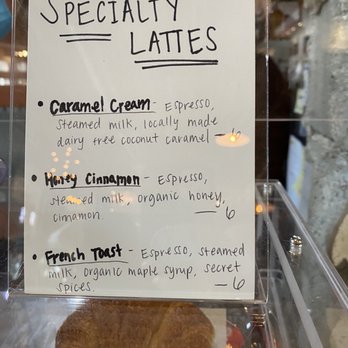 SPECIALTY
LATTES
• Caramel Cream - Espresso,
steamed milk, locally made
dairy free coconut caramel — 6
• Honey Cinnamon - Espresso,
steamed milk, organic honey,
cinamon. — 6
• French Toast - Espresso, steamed
milk, organic maple syrup, secret
spices. — 6